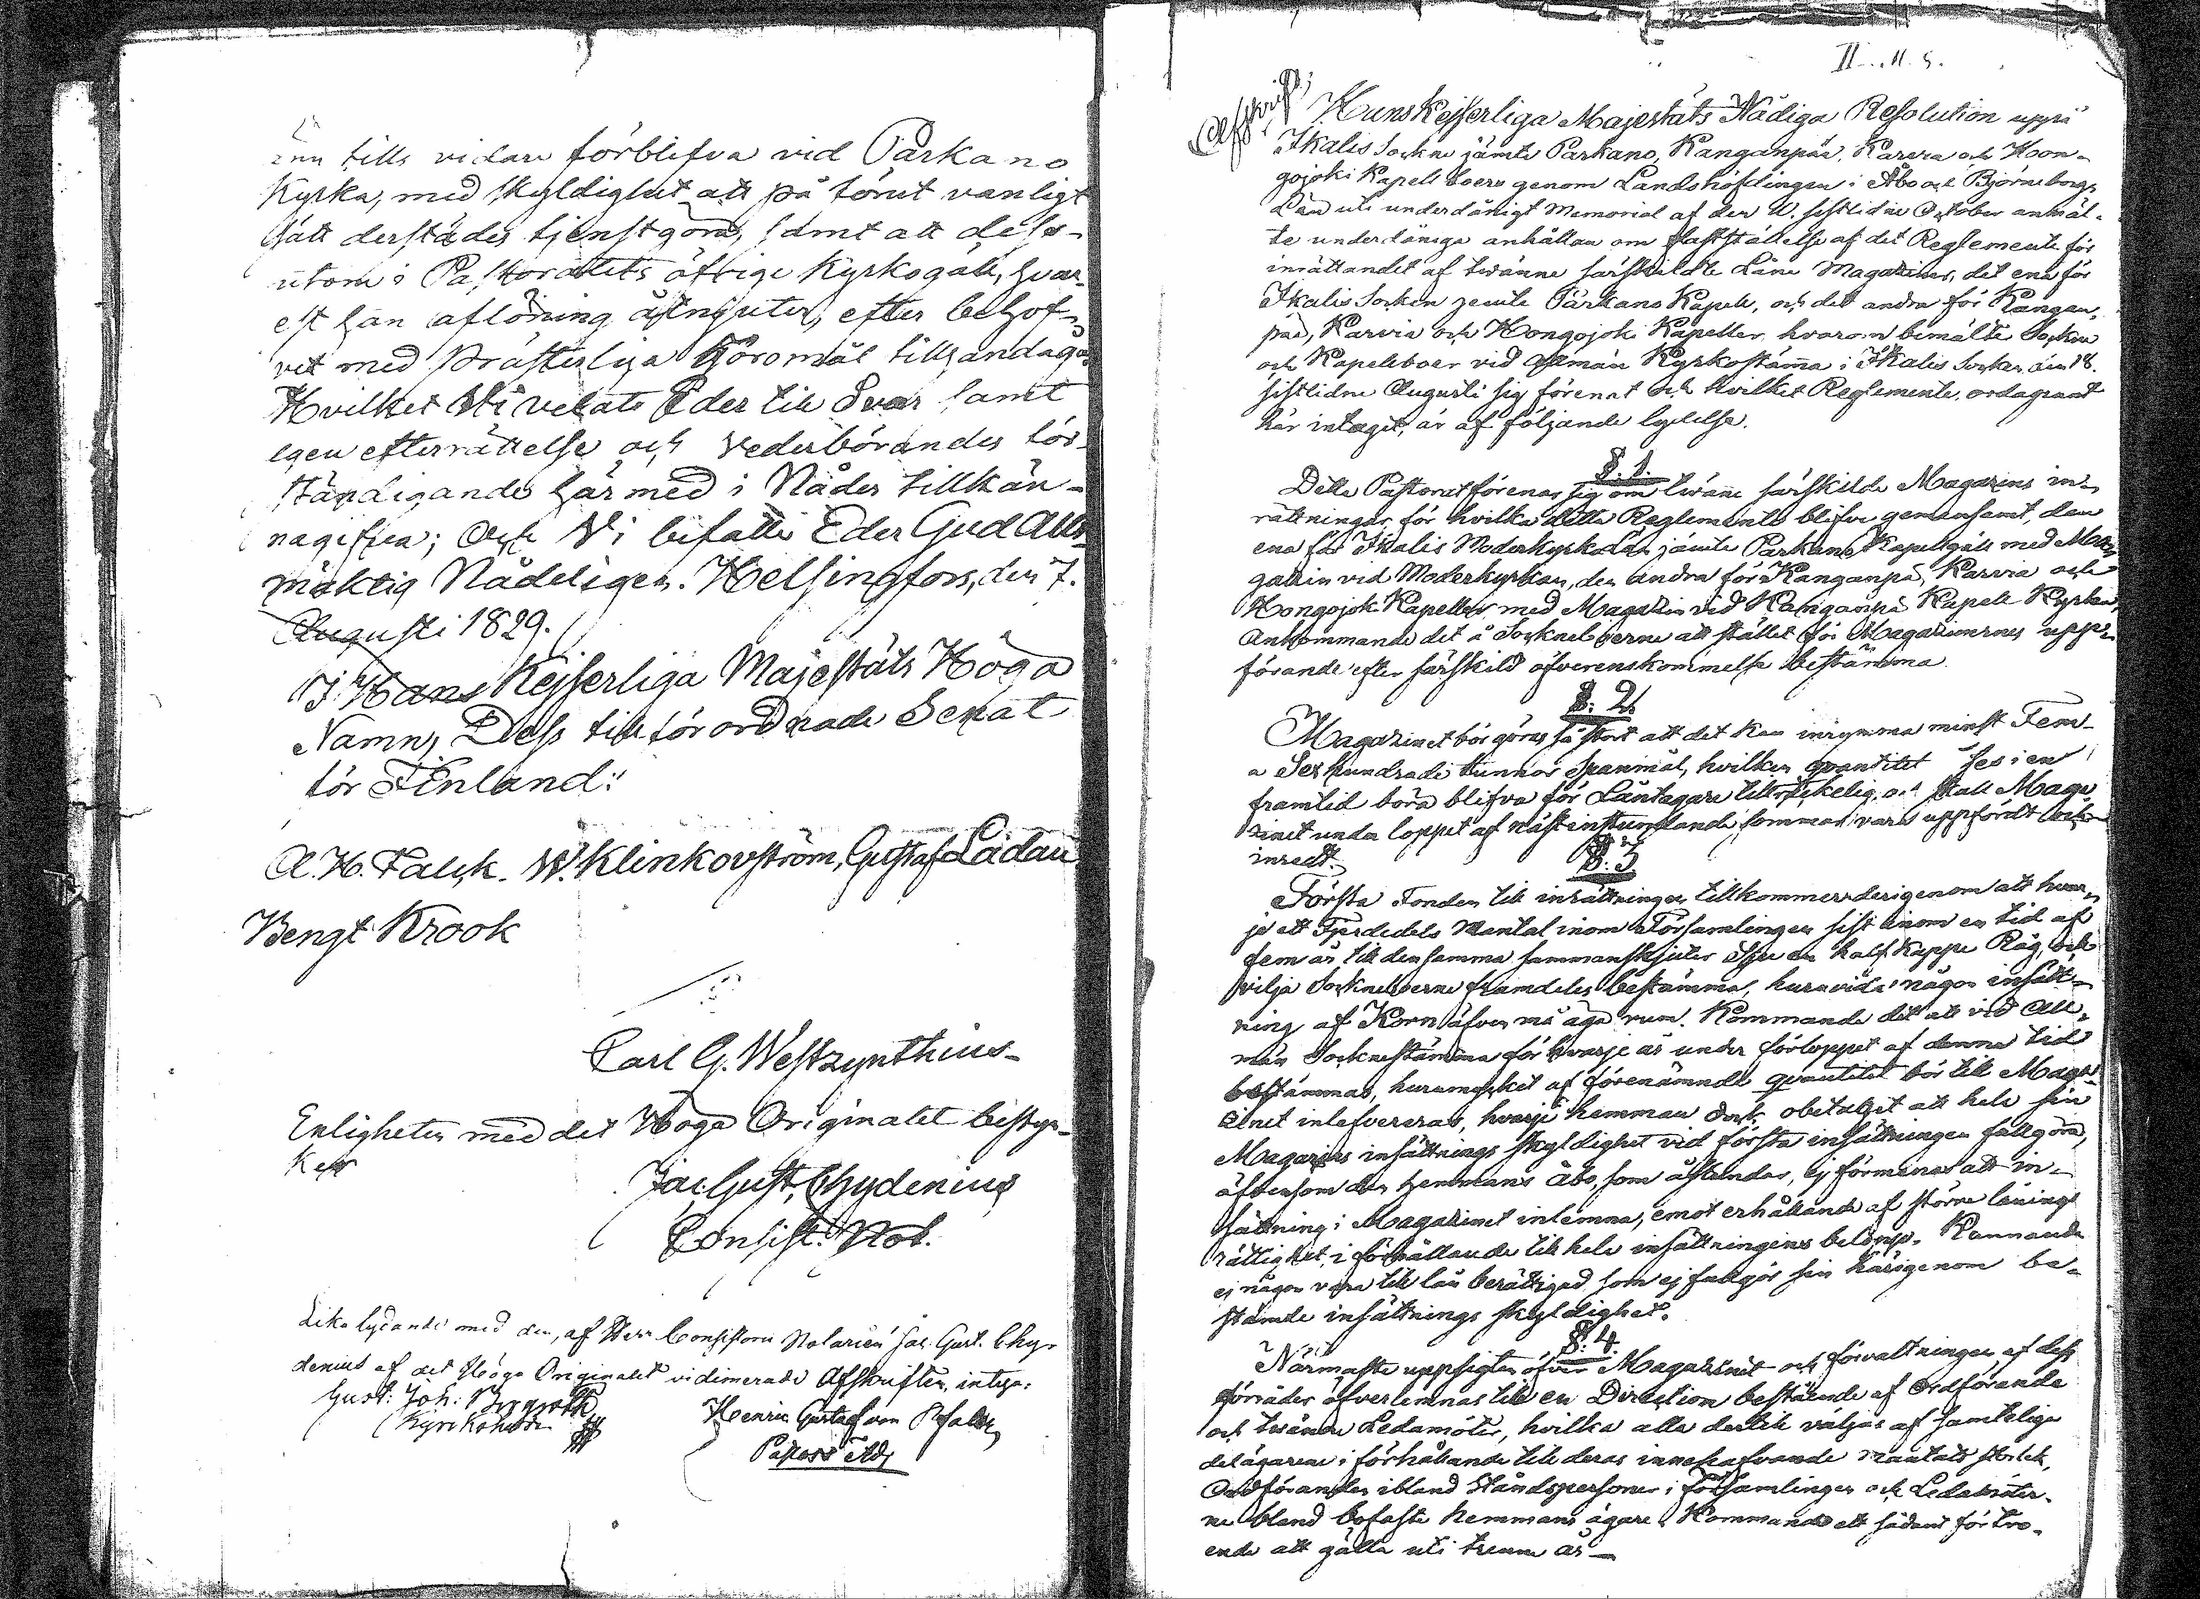 änn tills vidare förblifva vid Parkano
Kyrka, med skyldighet att på förut vanligt
sätt derstädes tjenstgöra, samt att dess-
utom i Pastoratets öfrige Kyrkogäll, hvar-
est han aflöning åtnjuter, efter behof-
vet med Prästerliga Göromål tillhandagå.
Hvilket Vi velat Eder till Svar samt
egen efterrättelse och vederbörandes för-
ständigande härmed i Nåder tillkän-
nagifva; Och Vi befalle Eder Gud Alls-
mäktig Nådeligen. Helsingfors, den 7.
Augusti 1829.
I Hans Kejserliga Majestäts Höga
Namn, Dess tillförordnade Senat
för Finland:
A. H. Falck. W. Klinkovström, Gustaf Ladau
Bengt Krook
Carl G. Westzynthius
Enligheten med det Höga Originalet bestyr-
ker
Jac. Gust. Chydenius
Consist. Not.
Lika lydande med den, af Herr Consistorii Notarien Jac. Gust. Chy-
denius af det Höga Originalet vidimerade Afskriften, intyga:
Gust: Joh:
Henric Gustaf von
Pastors Adj.
II
Afskrift;
Hans Kejserliga Majestäts Nådiga Resolution uppå
Ikalis Sockne jämte Parkano, Kanganpää, Karvia och Hon-
gojoki Kapell boers genom Landshöfdingen i Åbo och Björneborgs
Län uti underdånigt Memorial af den sistlidne October anmäl-
te underdåniga anhållan om faststältelse af det Reglemente för
inrättandet af twänne särskildte Låne Magaziner, det ena för
Ikalis Socken jemte Parkano Kapell, och det andra för Kangan-
pää, Karvia och Hongojoki Kapeller, hvarom bemälte Sockne
och Kapellboer vid allmän Kyrkostämma i Ikalis Socken den 18.
sistlidne Augusti sig förenat och hvilket Reglemente, ordagrant
här intagit, är af följande lydelse.
§. 1.
Detta Pastorat förenar sig om twänne särskilde Magazins in-
rättningar, för hvilka detta Reglemente blifver gemensamt, den
ena för Ikalis Moderkyrka jämte Parkano Kapellgäll med Ma-
gazin vid Moderkyrkan, den andra för Kanganpä, Karvia och
Hongojoki Kapeller med Magazin vid Kanganpä Kapell Kyrka,
Ankommande det å Socknelboerne att stället för Magazinernes upp-
förande efter särskild öfverenskommelse bestämma.
§. 2.
Magazinet bör göras så stort att det kan inrymma minst Fem-
a Sexhundrade tunnor Spanmål, hvilken qvantitet äfves i en
framtid böra blifva för Låntagare tillräckelig, och skall Maga-
zinet under loppet af nästinstundande sommar vara uppfördt och
inredt.
§. 3
Första Fonden till inrättningen tillkommer derigenom att hvar-
je ett Fjerdedels Mantal inom Församlingen sist inom en tid af
fem år till densamma sammanskjuter Sju en half Kappe Råg, och
vilja Socknelboerne framdeles bestämma, huruvida någon insätt-
ning af Korn äfven må äga rum. Kommande det att vid All-
män Sockenstämma för hvarje år under förloppet af denna tid
bestämmas, huru mycket af förenämnde qvantitet bör till Maga-
zinet inlefvereras, hvarje hemman dock obetaget att hela sin
Magazins insättnings skyldighet vid första insättningen fullgöra,
äfvensom den hemmans Åbo, som åstundar, ej förmenas att in-
sättning i Magazinet inlemna, emot erhållande af större lånings
rättighet, i förhållande till hela insättningens belopp. Kunnande
ej någon vara till lån berättigad som ej fullgör sin härigenom be-
stämde insättnings skyldighet.
§. 4.
Närmaste uppsigten öfver Magazinet och förvaltningen af dess
förråder öfverlemnas till en Direction bestående af Ordförande
och twänne Ledamöter, hvilka alla dertill väljas af samtelige
delägarene i förhållande till deras innehafvande mantals storlek,
Ordföranden ibland Ståndspersoner i Församlingen och Ledamöter-
ne bland bofaste hemmans ägare. Kommande ett sådant förtro-
ende att gälla uti trenne år